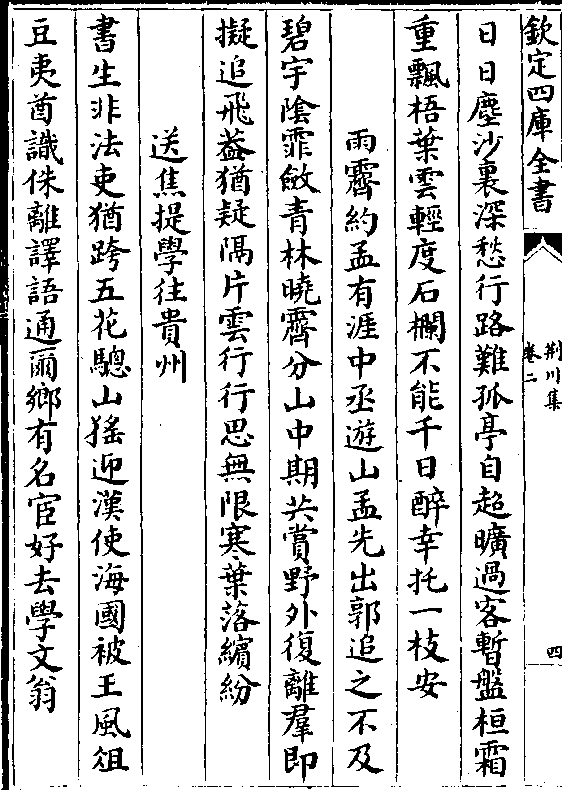 欽定四庫全書
荆川集
卷二
四
日日塵沙裏深愁行路難孤亭自超曠過客暫盤桓霜
重飄梧葉雲輕度石欄不能千日醉幸托一枝安
雨霽約孟有涯中丞遊山孟先出郭追之不及
碧宇陰霏斂青林曉霽分山中期共賞野外復離羣即
擬追飛葢猶疑隔片雲行行思無限寒葉落繽紛
送焦提學往貴州
書生非法吏猶跨五花驄山猺迎漢使海國被王風俎
豆夷酋識侏離譯語通爾鄉有名宦好去學文翁